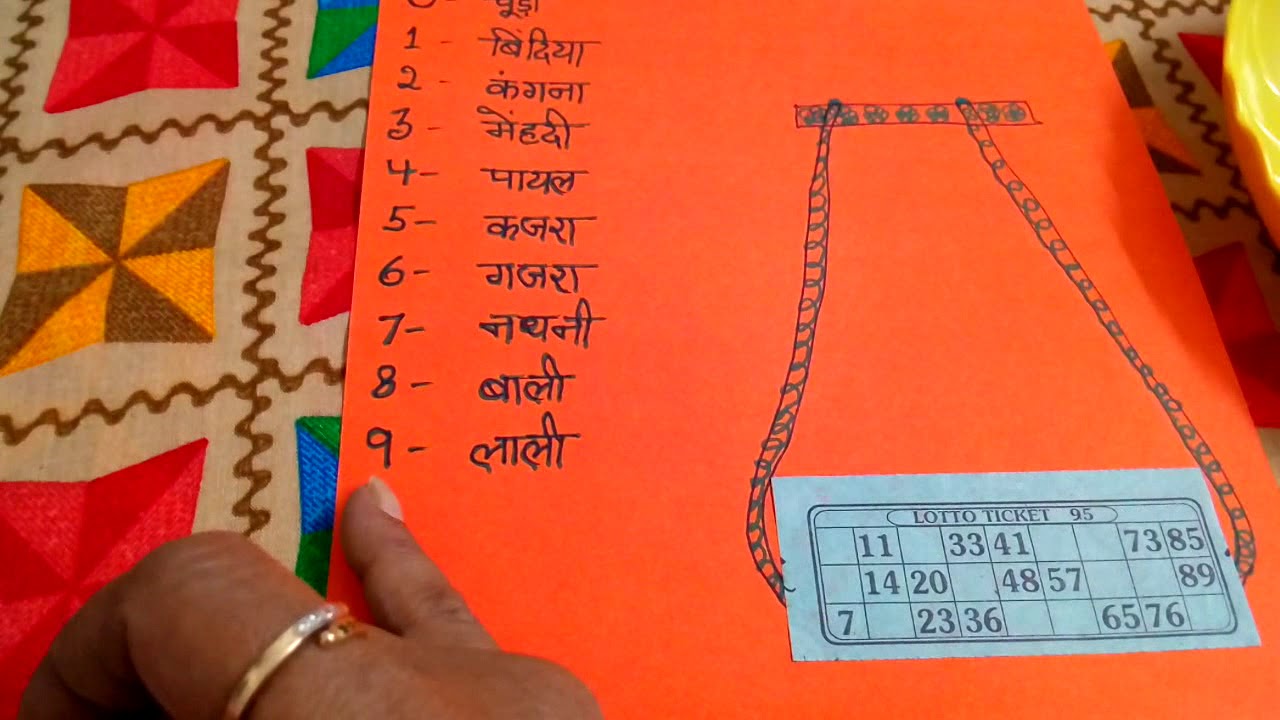 0 - चूड़ी
1 - बिंदिया
2 - कंगना
3 - मेंहदी
4 - पायल
5 - कजरा
6 - गजरा
7 - नथनी
8 - बाली
9 - लाली
LOTTO TICKET 95
11 33 41 73 85
14 20 48 57 89
7 23 36 65 76